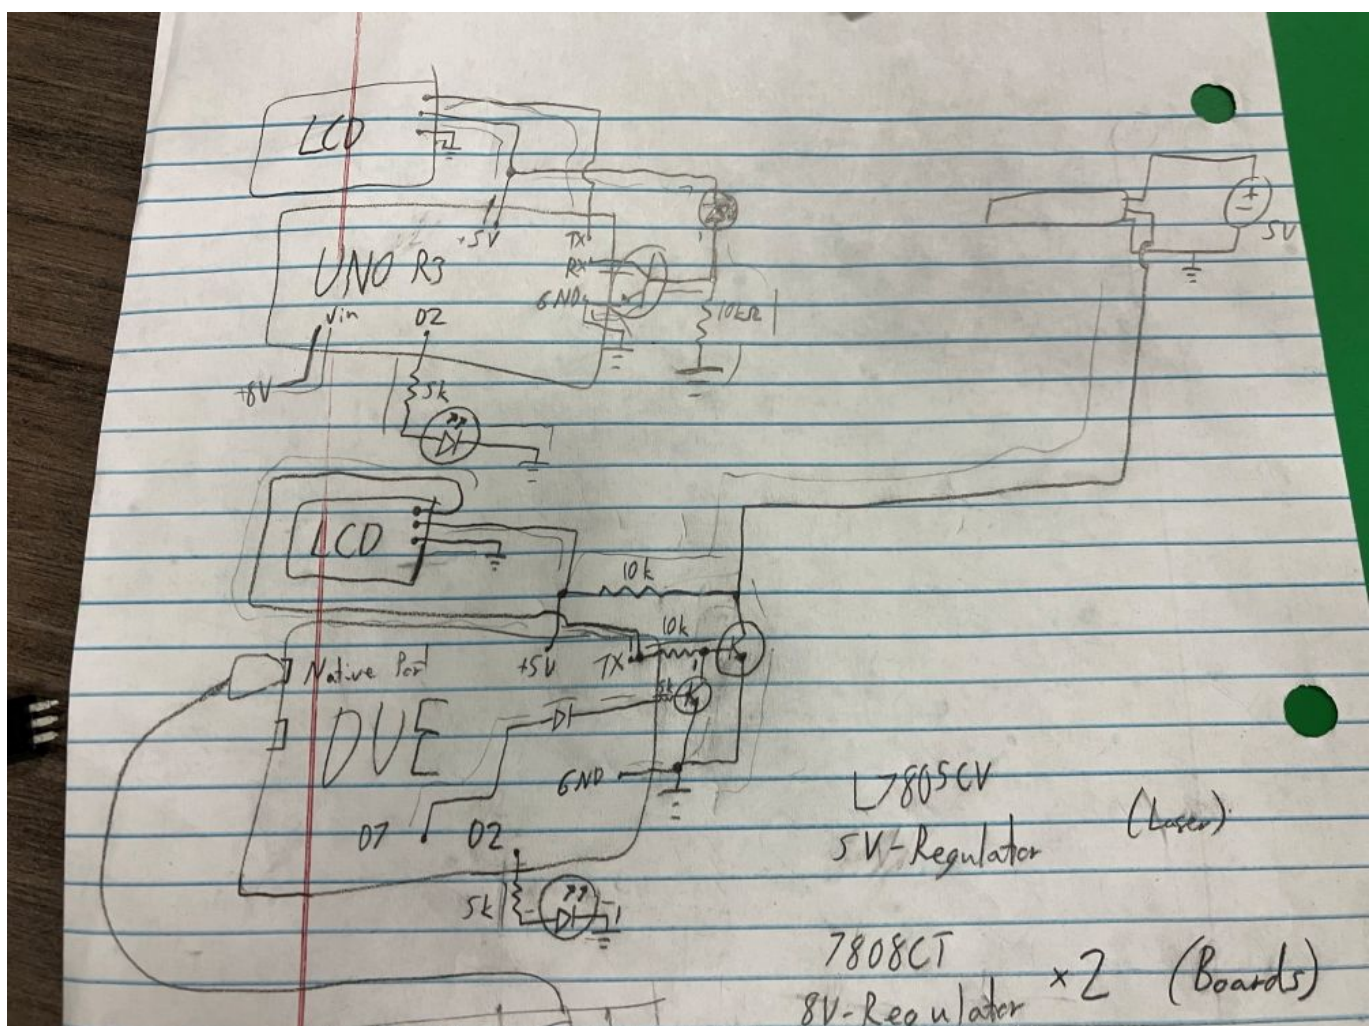 LCD
+5V
TX
UNO R3
RX
GND
Vin
D2
10kΩ
+8V
5k
+
-
5V
LCD
10k
10k
+5V
TX
Native Port
5k
DUE
GND
D7
D2
5k
L7805CV
5V-Regulator
(Laser)
7808CT
8V-Regulator
×2 (Boards)